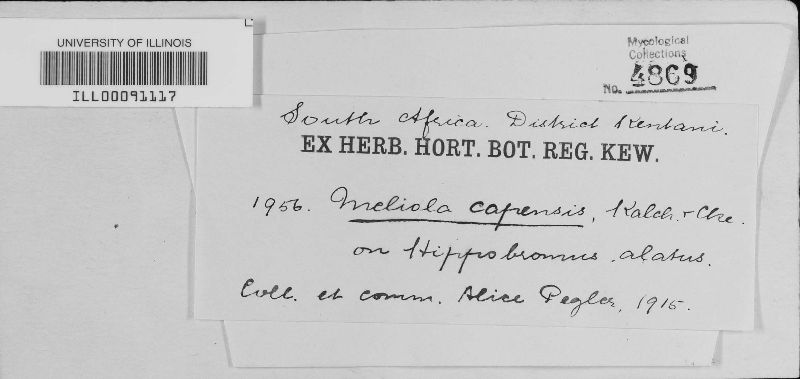 UNIVERSITY OF ILLINOIS
ILL00091117
Mycological
Collections
No. 4869
South Africa. District Kentani.
EX HERB. HORT. BOT. REG. KEW.
1956. Meliola capensis, Kalch. & Cke.
on Hippobromus alatus.
Coll. et comm. Alice Pegler, 1915.